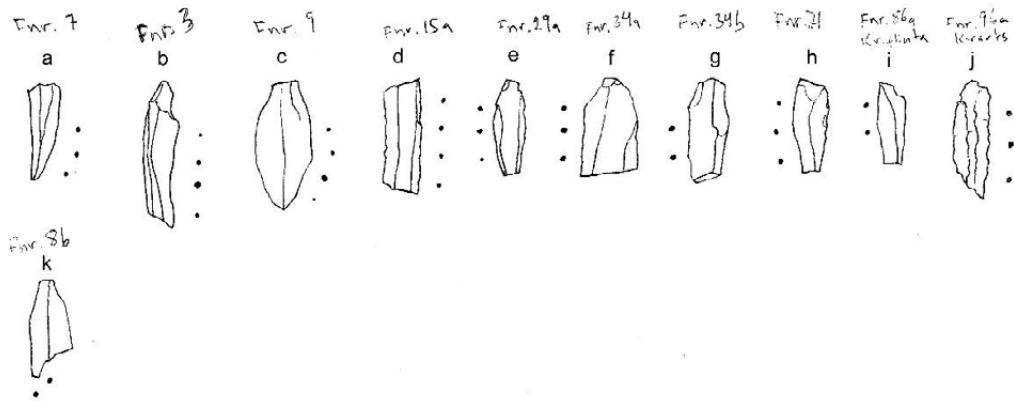 Fnr. 7
a
Fnr. 3
b
Fnr. 9
c
Fnr. 15a
d
Fnr. 29a
e
Fnr. 34a
f
Fnr. 34b
g
Fnr. 21
h
Fnr. 86a
Kr.flinta
i
Fnr. 96a
Kvarts
j
Fnr. 8b
k